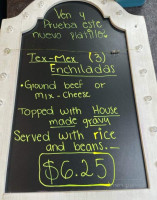 Ven y
Prueba este
nuevo platillo
Tex-Mex (3)
Enchiladas
• Ground beef or
mix-cheese
Topped with House
made gravy
Served with rice
and beans.
$6.25